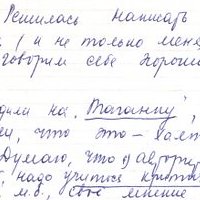 Решилась написать
( и не только меня
говорим себе хорошо
дили на „Таганку",
что это — халт
Думаю, что д
надо учиться крити
м.б., своё мнение